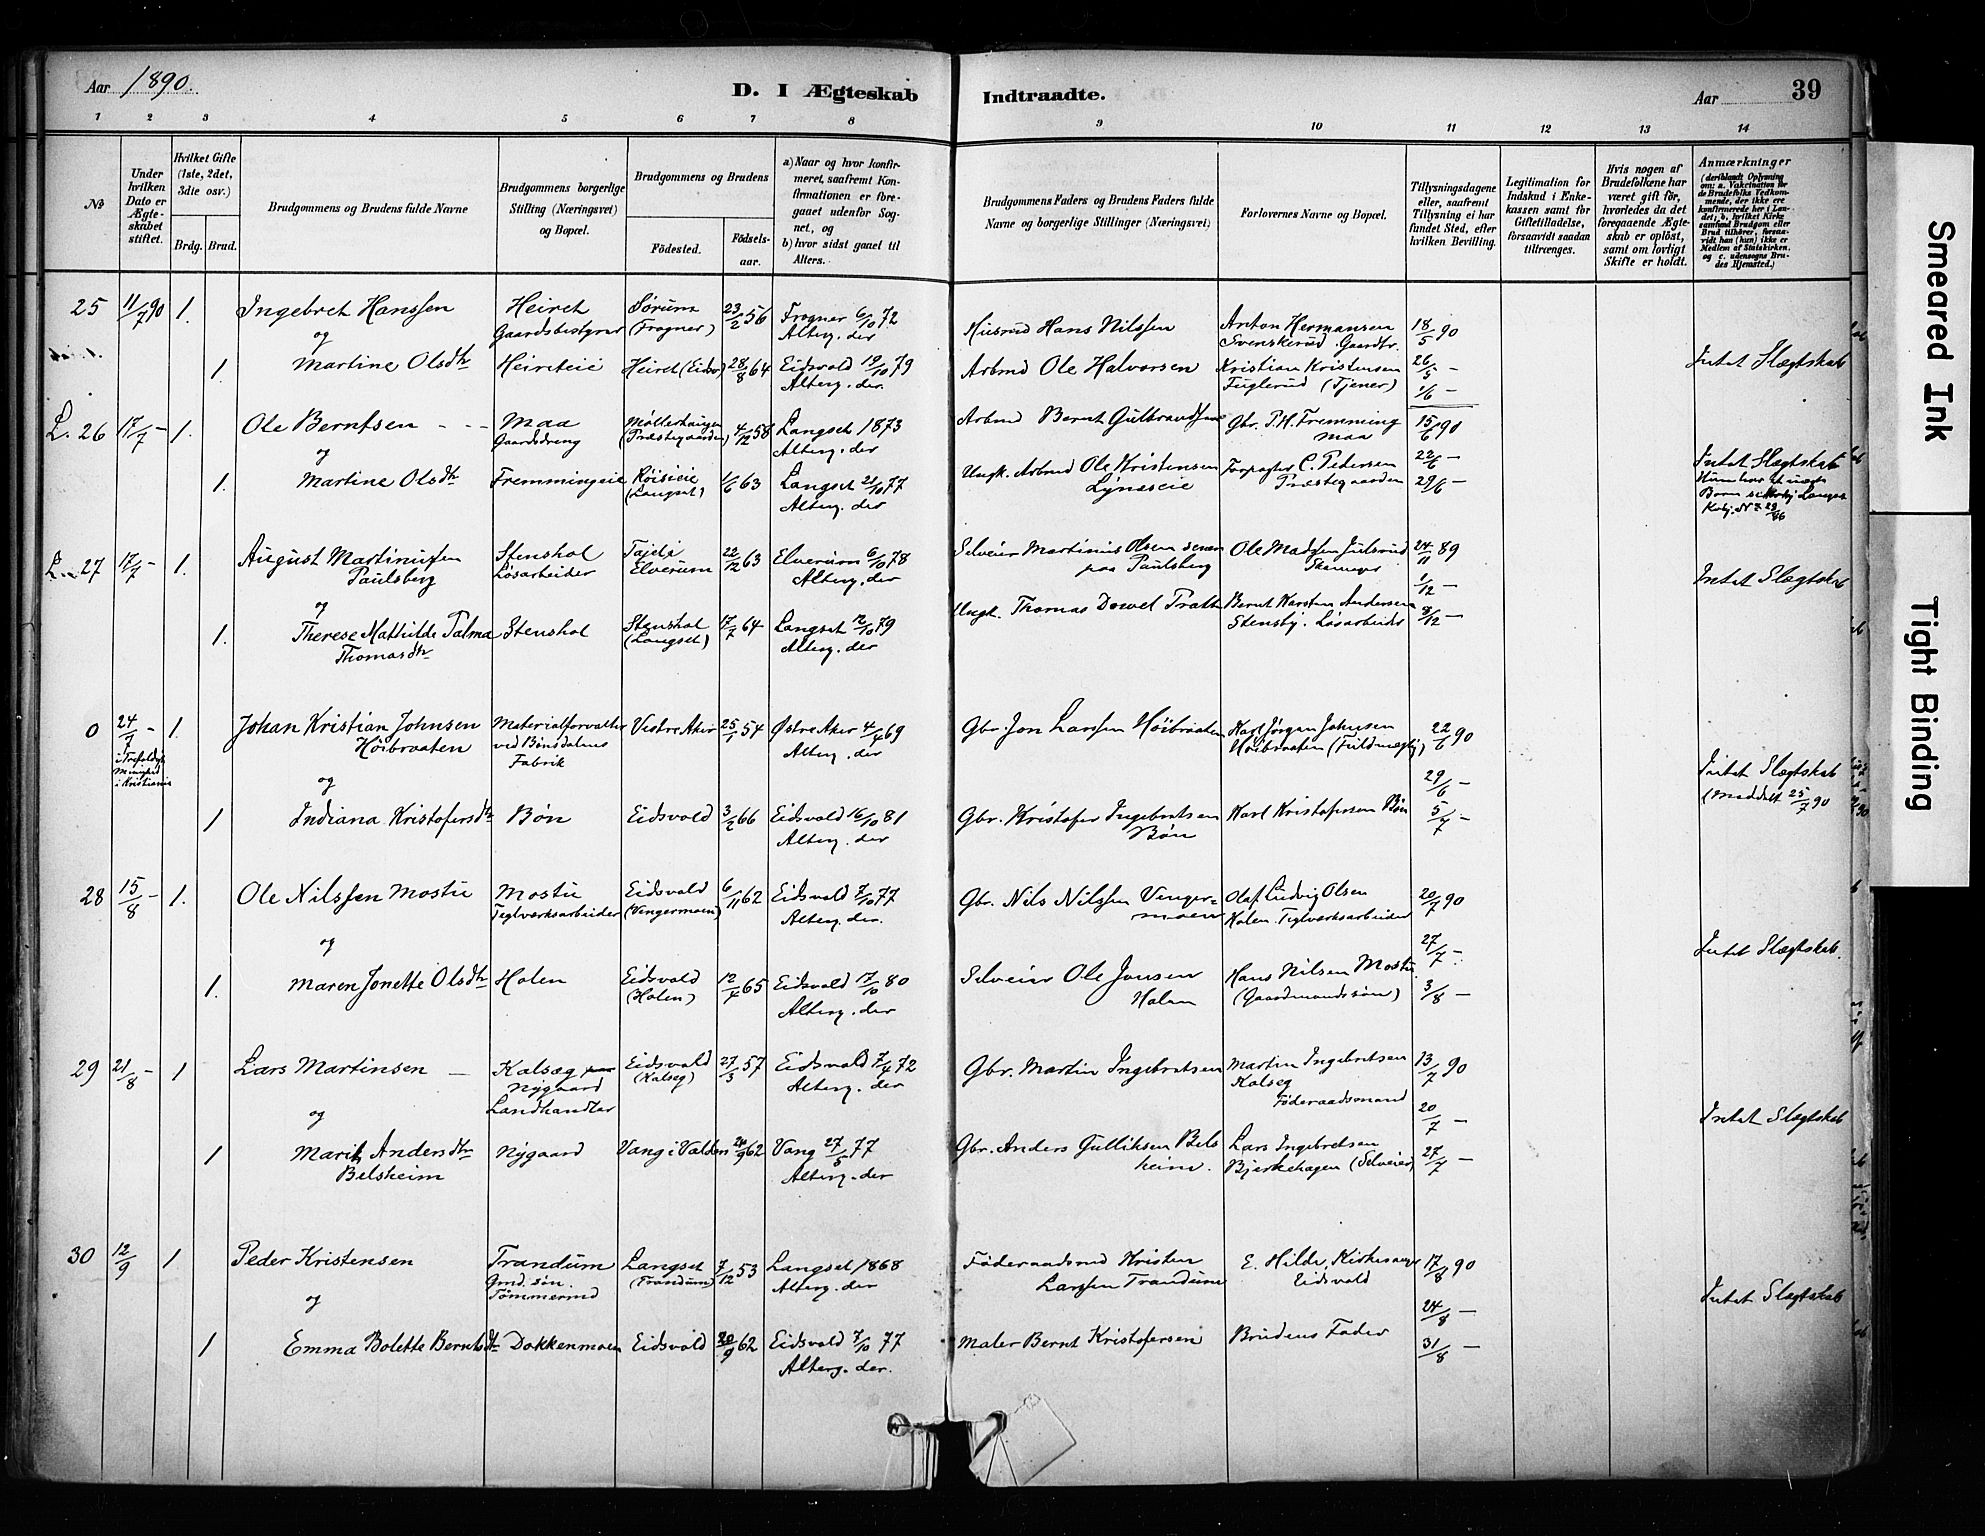 Aar 1890.
D. I Ægteskab Indtraadte.
Aar 39
1 2 3 4 5 6 7 8 9 10 11 12 13 14
No
Under hvilken Dato er Ægteskabet stiftet.
Hvilket Gifte (1ste, 2det, 3die osv.)
Brdg. Brud.
Brudgommens og Brudens fulde Navne
Brudgommens borgerlige Stilling (Næringsvei) og Bopæl.
Brudgommens og Brudens
Fødested. Fødselsaar.
a) Naar og hvor konfirmeret, saafremt Konfirmationen er foregaaet udenfor Sognet, og
b) hvor sidst gaaet til Alters.
Brudgommens Faders og Brudens Faders fulde Navne og borgerlige Stillinger (Næringsvei)
Forlovernes Navne og Bopæl.
Tillysningsdagene eller, saafremt Tillysning ei har fundet Sted, efter hvilken Bevilling.
Legitimation for Indskud i Enkekassen samt for Giftetilladelse, forsaavidt saadan tiltrænges.
Hvis nogen af Brudefolkene har været gift før, hvorledes da det foregaaende Ægteskab er opløst, samt om lovligt Skifte er holdt.
Anmærkninger (deriblandt Oplysning om: a. Vakcination for de Brudefolks Vedkommende, der ikke ere konfirmerede her i Landet, b. hvilket Kirkesamfund Brudgom eller Brud tilhører, forsaavidt han (hun) ikke er Medlem af Statskirken, og c. udensogns Brudes Hjemsted.)
25 11/7 90 1. Ingebret Hanssen Heiret Sørum 23/2 56 Frogner 6/10 72 Husmd Hans Nilssen Anton Hermansen 18/5 90
og Gaardsbestyrer (Frogner) Alterg. der Svenskerud. Gaardbr.
1. Martine Olsdtr Heireteie Heiret (Eidsv) 28/8 64 Eidsvold 19/10 79 Arbmd Ole Halvorsen Kristian Kristensen 26/5 - Intet Slægtskab
Alterg. der. Fuglerud (Tjener) 1/6 -
L. 26 17/7 - 1. Ole Berntsen Maa Møllerhaugen 4/12 58 Langset 1873 Arbmd Bernt Gulbrandsen Gbr. P.H. Fremming 15/6 90
og Gaardsdreng (Præstegaarden) Alterg. der Maa
1. Martine Olsdtr Fremmingeie Røisieie 1/6 63 Langset 21/10 77 Ungk. Arbmd Ole Kristensen Forpagter C. Pedersen 22/6 - Intet Slægtskab
(Langset) Alterg. der Lynæseie Præstegaarden 29/6 - Hun har et uægte
Barn
L. 27 17/7 - 1. August Martinussen Stenshol 22/12 63 Elverum 6/10 78 Selveier Martinus Olsen Ole Madssen Julsrud 24/11 89
Paulsberg Løsarbeider Elverum Alterg. der paa Paulsberg 1/12 - Intet Slægtskab
og
1. Therese Mathilde Palma Stenshol Stenshol 17/7 64 Langset 12/10 79 Ungk. Thomas Bernt Karsten Andersen 8/12 -
Thomasdtr (Langset) Alterg. der Stensby. Løsarbeider
0 24/7 - 1. Johan Kristian Johnsen Materialforvalter Vestre Aker 25/1 54 Østre Aker 4/4 69 Gbr. Jon Larssen Høibraaten Karl Jørgen Johnsen 22/6 90
i Kristiania Høibraaten ved Bønsdalens Fabrik Alterg. der Høibraaten (Fuldmægtig)
og 29/6 - Intet Slægtskab
(Meddelt 25/7 90
1 Indiana Kristofersdtr Bøn Eidsvold 3/2 66 Eidsvold 16/10 81 Gbr. Kristofer Ingebretsen Karl Kristofersen Bøn 5/7 -
Alterg. der Bøn
28 15/8 - 1. Ole Nilssen Mostu Mostu Eidsvold 6/11 62 Eidsvold 7/10 77 Gbr. Nils Nilssen Venger- Olaf Ludvig Olsen 20/7 90
Teglværksarbeider (Vengermoen) Alterg. der. moen Holen. Teglværksarbeider
og 27/7 - Intet Slægtskab.
1. Maren Jonette Olsdtr Holen Eidsvold 12/4 65 Eidsvold 17/10 80 Selveier Ole Jonsen Hans Nilsen Mostu 3/8 -
(Holen) Alterg. der Holen (Gaardmandssøn)
29 21/8 - 1 Lars Martinsen Kalsæg Eidsvold 27/3 57 Eidsvold 7/4 72 Gbr. Martin Ingebretsen Martin Ingebretsen 13/7 90
Nygaard (Kalseg) Alterg. der Kalseg
og Landhandler Føderaadsmand 20/7 - Intet Slægtskab
1 Marit Andersdtr Nygaard Vang i Valders 62 Vang 27/5 77 Gbr. Anders Gulliksen Bels Lars Ingebretsen 27/7 -
Belsheim Alterg. der heim. Bjerkehagen (Selveier)
30 12/9 1 Peder Kristensen Trandum Langset 7/12 53 Langset 1868 Føderaadsmd Kristen E. Hilde, Kirkesanger 17/8 90
Gmd. søn. (Trandum) Alterg. der Larssen Trandum Eidsvold
og Tømmermd 24/8 - Intet Slægtskab
1 Emma Bolette Berntsdtr Dokkenmoen Eidsvold 62 Eidsvold 7/10 77 Maler Bernt Kristofersen Brudens Fader 31/8 -
Alterg. der.
Smeared Ink
Tight Binding